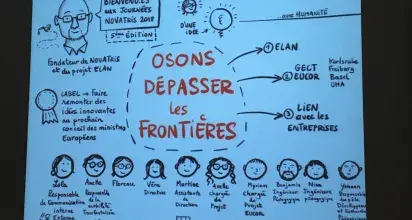 BIENVENU.ES
AUX JOURNÉES
NOVATRIS 2018
5ème ÉDITION
Fondateur de NOVATRIS
et du projet ELAN
D'UNE IDÉE
...AVEC HUMANITÉ
OSONS
DÉPASSER
les
FRONTIÈRES
① ELAN
② GECT
EUCOR
Karlsruhe
Freiburg
Basel
UHA
③ LIEN
avec les
ENTREPRISES
LABEL → Faire
remonter des
idées innovantes
au prochain
conseil des ministres
Européens
Lola
Responsable
de Communication
interne
Externe
Anette
Responsable
de la
Florence
Véra
Directrice
Martine
Assistante
de
Direction
Axelle
Chargée
de
Projet
Myriam
Chargée
de
Projet
EUCOR
Benjamin
Ingénieur
Pédagogique
Nina
Ingénieure
pédagogique
Responsable
du pôle